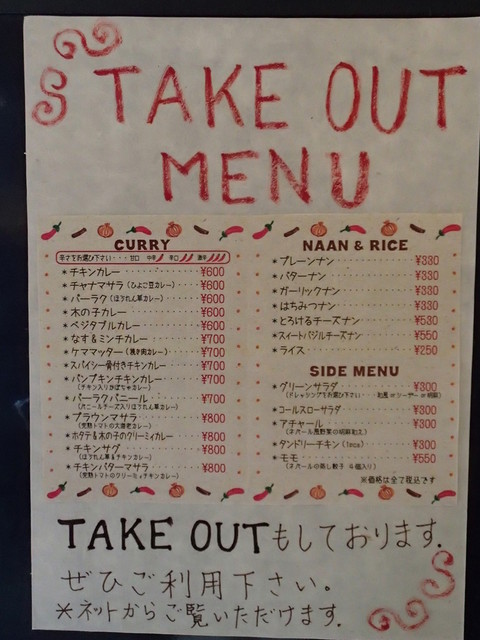 TAKE OUT
MENU
CURRY
辛さをお選び下さい… 甘口 中辛 辛口 激辛
*チキンカレー ¥600
*チャナマサラ(ひよこ豆カレー) ¥600
*パーラク(ほうれん草カレー) ¥600
*木の子カレー ¥600
*ベジタブルカレー ¥600
*なす&ミンチカレー ¥700
*ケママッター(挽き肉カレー) ¥700
*スパイシー骨付きチキンカレー ¥700
*パンプキンチキンカレー ¥700
(チキン入りかぼちゃカレー)
*パーラクパニール ¥700
(パニールチーズ入りほうれん草カレー)
*プラウンマサラ ¥800
(完熟トマトの大海老カレー)
*ホタテ&木の子のクリーミィカレー ¥800
*チキンサグ ¥800
(ほうれん草&チキンカレー)
*チキンバターマサラ ¥800
(完熟トマトのクリーミィチキンカレー)
NAAN & RICE
*プレーンナン ¥330
*バターナン ¥330
*ガーリックナン ¥330
*はちみつナン ¥330
*とろけるチーズナン ¥530
*スィートバジルチーズナン ¥550
*ライス ¥250
SIDE MENU
*グリーンサラダ ¥300
(ドレッシングをお選び下さい…
*コールスローサラダ ¥300
*アチャール ¥300
(ネパール風野菜の胡麻和え)
*タンドリーチキン(1pcs) ¥300
*モモ ¥550
(ネパールの蒸し餃子 4個入り)
※価格は全て税込です
TAKE OUTもしております。
ぜひご利用下さい。
*ネットからご覧いただけます。